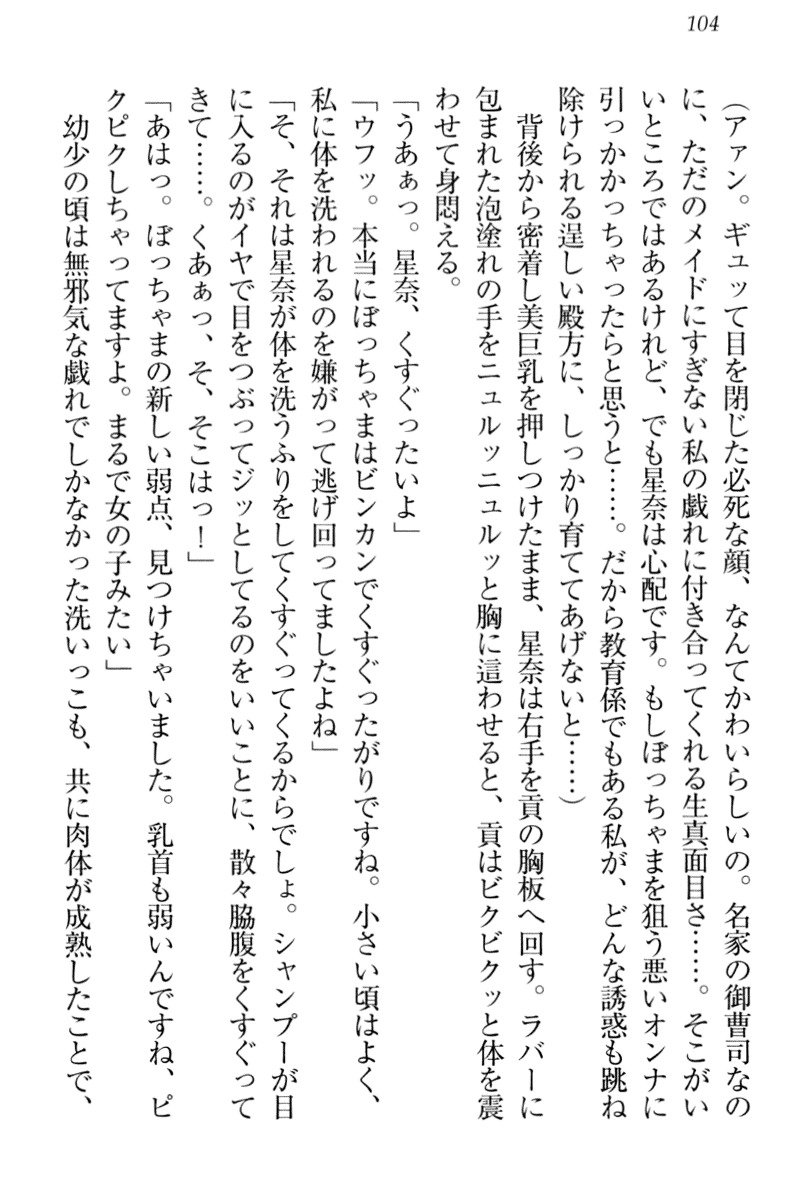 104
（アァン。ギュッて目を閉じた必死な顔、なんてかわいらしいの。名家の御曹司なの
に、ただのメイドにすぎない私の戯れに付き合ってくれる生真面目さ……。そこがい
いところではあるけれど、でも星奈は心配です。もしぼっちゃまを狙う悪いオンナに
引っかかっちゃったらと思うと……。だから教育係でもある私が、どんな誘惑も跳ね
除けられる逞しい殿方に、しっかり育ててあげないと……）
背後から密着し美巨乳を押しつけたまま、星奈は右手を貢の胸板へ回す。ラバーに
包まれた泡塗れの手をニュルッニュルッと胸に這わせると、貢はビクビクッと体を震
わせて身悶える。
「うあぁっ。星奈、くすぐったいよ」
「ウフッ。本当にぼっちゃまはビンカンでくすぐったがりですね。小さい頃はよく、
私に体を洗われるのを嫌がって逃げ回ってましたよね」
「そ、それは星奈が体を洗うふりをしてくすぐってくるからでしょ。シャンプーが目
に入るのがイヤで目をつぶってジッとしてるのをいいことに、散々脇腹をくすぐって
きて……。くあぁっ、そ、そこはっ！」
「あはっ。ぼっちゃまの新しい弱点、見つけちゃいました。乳首も弱いんですね、ピ
クピクしちゃってますよ。まるで女の子みたい」
幼少の頃は無邪気な戯れでしかなかった洗いっこも、共に肉体が成熟したことで、